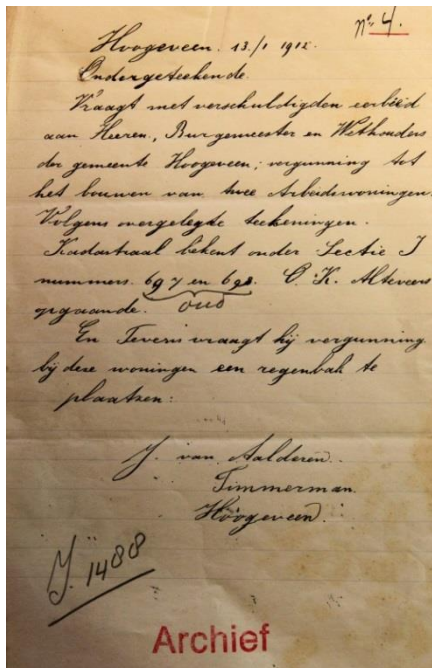 No 4.
Hoogeveen. 13/1 1912.
Ondergeteekende.
Vraagt met verschuldigden eerbied
aan Heeren, Burgemeester en Wethouders
der gemeente Hoogeveen; vergunning tot
het bouwen van twee Arbeiderwoningen.
Volgens overgelegde teekeningen.
Kadastraal bekent onder Sectie I
nummers. 697 en 698. O.K. Alteveers
opgaande. oud
En Tevens vraagt hij vergunning
bij deze woningen een regenbak te
plaatsen:
J. van Aalderen.
Timmerman.
Hoogeveen.
J. 1488
Archief